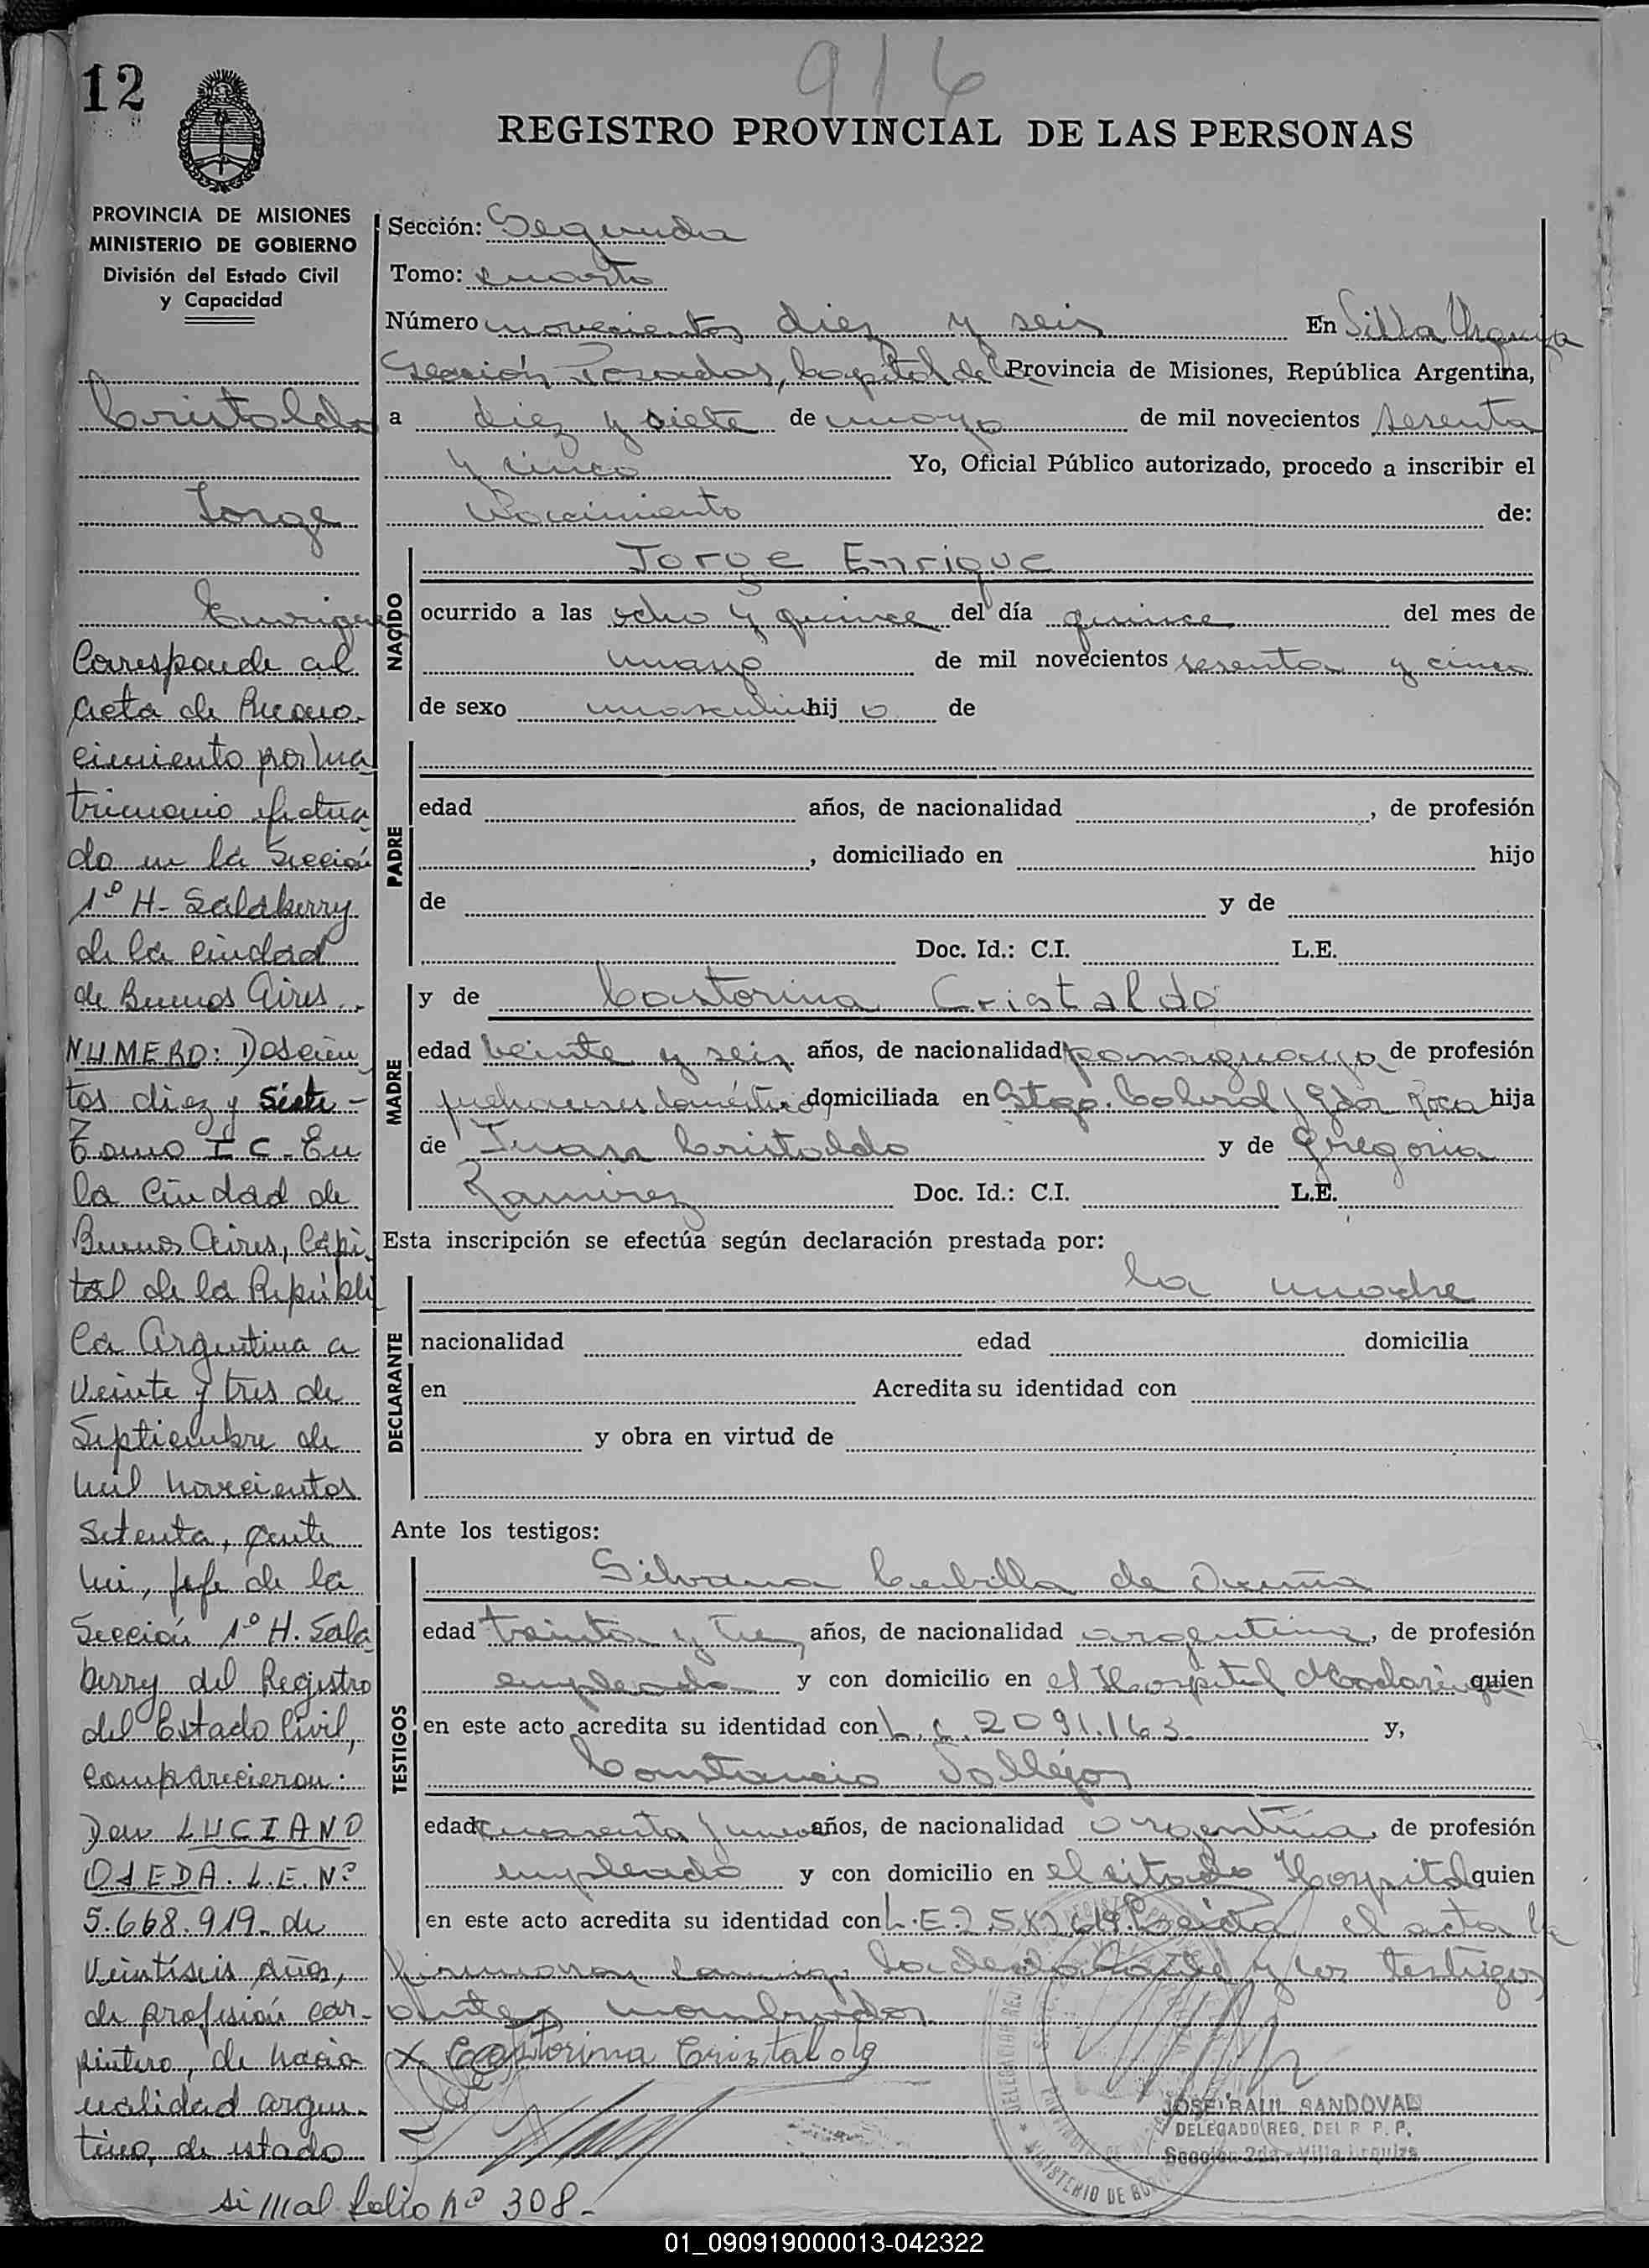 916
12
REGISTRO PROVINCIAL DE LAS PERSONAS
PROVINCIA DE MISIONES
MINISTERIO DE GOBIERNO
División del Estado Civil
y Capacidad
Cristaldo
Jorge
Enrique
Corresponde al
Acta de Recono-
cimiento por ma
trimonio efectua
do en la Sección
1º H- Salaberry
de la ciudad
de Buenos Aires.-
NUMERO: Doscien
tos diez y Siete-
Tomo I C- En
la Ciudad de
Buenos Aires, Capi
tal de la Repúbli
ca Argentina a
veinte y tres de
Septiembre de
mil novecientos
setenta, ante
mi, Jefe de la
Sección 1º H. Sala
berry del Registro
del Estado Civil,
comparecieron:
Don LUCIANO
OJEDA. L.E. Nº
5.668.919- de
veintiseis años,
de profesión car-
pintero, de nacio
nalidad argen-
tina, de estado
Sección: Segunda
Tomo: cuarto
Número novecientos diez y seis En Villa Urquiza
Sección Posadas, Capital de la Provincia de Misiones, República Argentina,
a diez y siete de mayo de mil novecientos sesenta
y cinco Yo, Oficial Público autorizado, procedo a inscribir el
Nacimiento de:
NACIDO
Jorge Enrique
ocurrido a las ocho y quince del día quince del mes de
mayo de mil novecientos sesenta y cinco
de sexo masculino hij o de
PADRE
edad años, de nacionalidad , de profesión
, domiciliado en hijo
de y de
Doc. Id.: C.I. L.E.
MADRE
y de Castorina Cristaldo
edad veinte y seis años, de nacionalidad paraguaya, de profesión
quehaceres domésticos domiciliada en Stgo. Roca hija
de Juan Cristaldo y de Gregoria
Ramirez Doc. Id.: C.I. L.E.
Esta inscripción se efectúa según declaración prestada por:
DECLARANTE
la madre
nacionalidad edad domicilia
en Acredita su identidad con
y obra en virtud de
Ante los testigos:
TESTIGOS
Silvana de
edad treinta y tres años, de nacionalidad argentina, de profesión
empleada y con domicilio en el Hospital Madariaga quien
en este acto acredita su identidad con L.C. 2091.163 y,
Constancio Vallejos
edad cuarenta y años, de nacionalidad argentina, de profesión
empleado y con domicilio en el citado Hospital quien
en este acto acredita su identidad con L.E. Leída el acta la
firmaron conmigo la declarante y los testigos
antes nombrados.
x Castorina Cristaldo
JOSE RAUL SANDOVAL
DELEGADO REG. DEL R. P. P.
Sección 2da - Villa Urquiza
MINISTERIO DE
si///al folio nº 308-
01_090919000013-042322